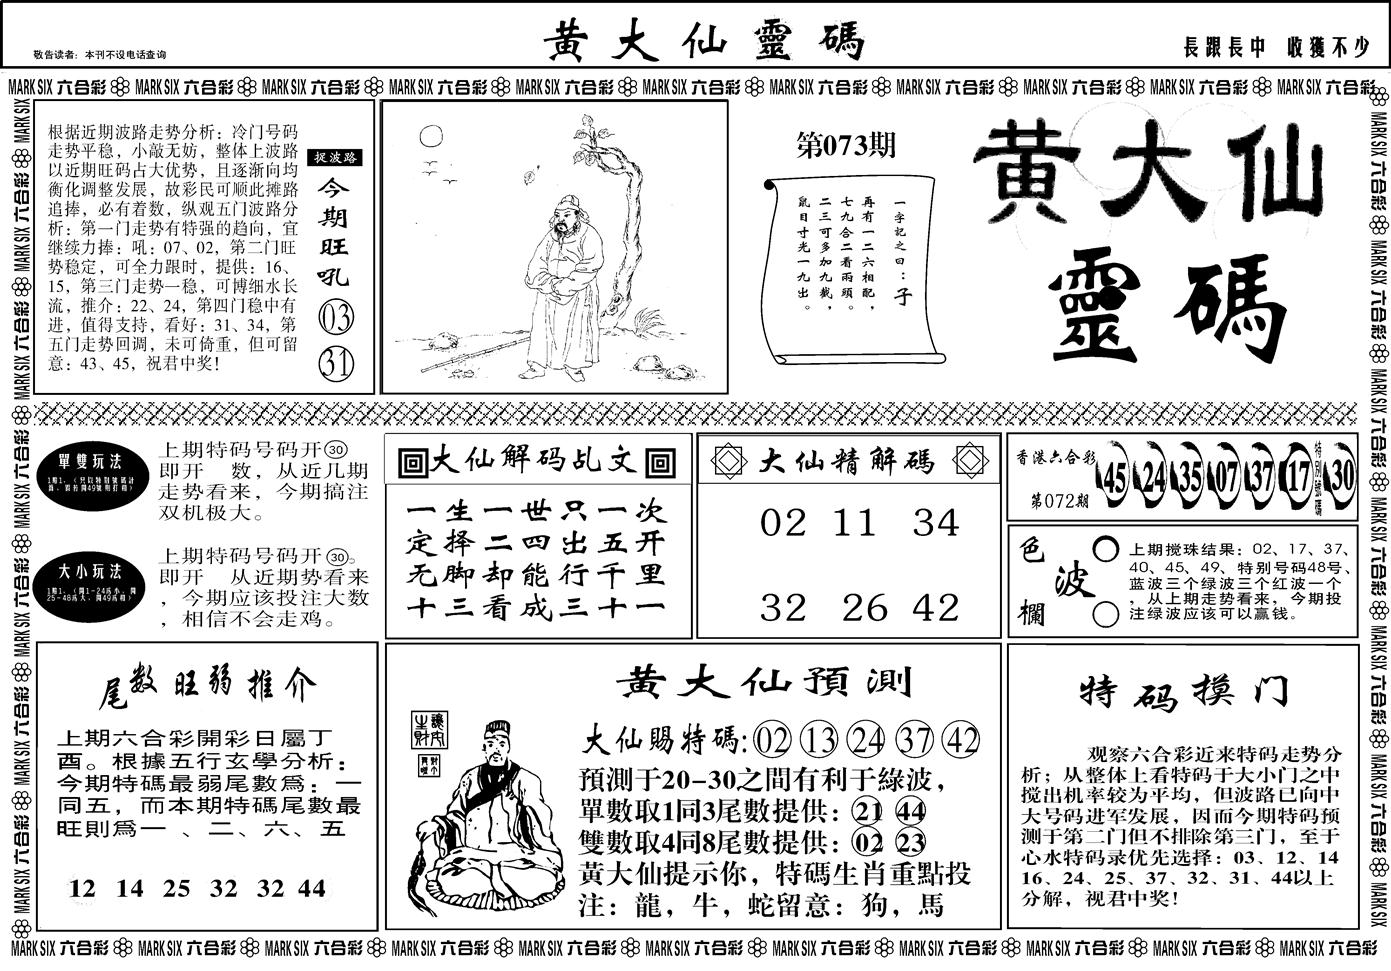 敬告读者：本刊不设电话查询
黄大仙靈碼
長跟長中 收獲不少
MARK SIX 六合彩 MARK SIX 六合彩 MARK SIX 六合彩 MARK SIX 六合彩 MARK SIX 六合彩 MARK SIX 六合彩 MARK SIX 六合彩 MARK SIX 六合彩 MARK SIX 六合彩 MARK SIX 六合彩 MARK SIX 六合彩
根据近期波路走势分析：冷门号码
走势平稳，小敲无妨，整体上波路
以近期旺码占大优势，且逐渐向均
衡化调整发展，故彩民可顺此摊路
追捧，必有着数，纵观五门波路分
析：第一门走势有特强的趋向，宜
继续力捧：吼：07、02，第二门旺
势稳定，可全力跟时，提供：16、
15，第三门走势一稳，可博细水长
流，推介：22、24，第四门稳中有
进，值得支持，看好：31、34，第
五门走势回调，未可倚重，但可留
意：43、45，祝君中奖！
捉波路
今期旺吼
03
31
第073期
一字記之曰：子
再有一二六相配，
七九合二看兩頭。
二三可多加九載，
鼠目寸光一九出。
黄大仙
靈碼
單雙玩法
上期特码号码开㉚
即开 数，从近几期
走势看来，今期搞注
双机极大。
大小玩法
上期特码号码开㉚。
即开 从近期势看来
，今期应该投注大数
，相信不会走鸡。
大仙解码乩文
一生一世只一次
定择二四出五开
无脚却能行千里
十三看成三十一
大仙精解碼
02 11 34
32 26 42
香港六合彩
第072期
45 24 35 07 37 17 特別號碼 30
色波欄
上期搅珠结果：02、17、37、
40、45、49、特别号码48号、
蓝波三个绿波三个红波一个
，从上期走势看来，今期投
注绿波应该可以赢钱。
尾数旺弱推介
上期六合彩開彩日屬丁
酉。根據五行玄學分析：
今期特碼最弱尾數爲：一
同五，而本期特碼尾數最
旺則爲一 、二、六、五
12 14 25 32 32 44
黄大仙預測
大仙賜特碼:02 13 24 37 42
預測于20-30之間有利于綠波，
單數取1同3尾數提供：21 44
雙數取4同8尾數提供：02 23
黃大仙提示你，特碼生肖重點投
注：龍，牛，蛇留意：狗，馬
特码摸门
观察六合彩近来特码走势分
析；从整体上看特码于大小门之中
搅出机率较为平均，但波路已向中
大号码进军发展，因而今期特码预
测于第二门但不排除第三门，至于
心水特码录优先选择：03、12、14
16、24、25、37、32、31、44以上
分解，祝君中奖！
MARK SIX 六合彩 MARK SIX 六合彩 MARK SIX 六合彩 MARK SIX 六合彩 MARK SIX 六合彩 MARK SIX 六合彩 MARK SIX 六合彩 MARK SIX 六合彩 MARK SIX 六合彩 MARK SIX 六合彩 MARK SIX 六合彩